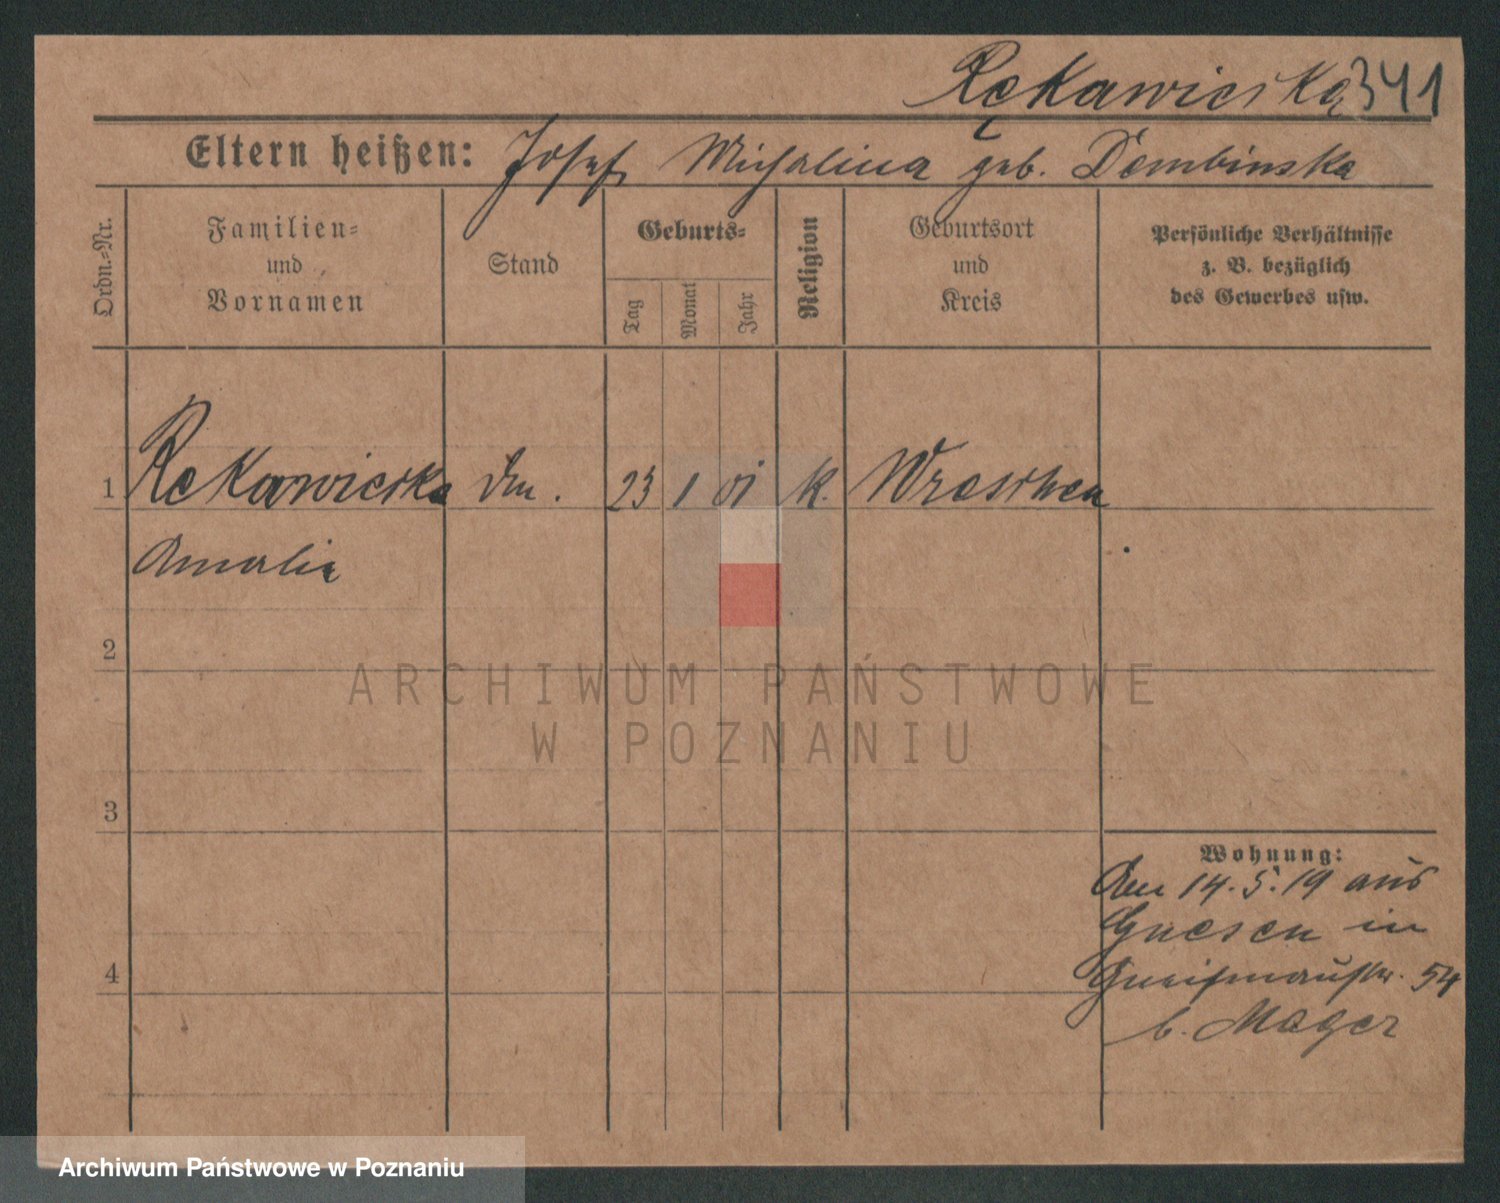 Rękawieska 341
Eltern heißen: Josef, Michalina geb. Dembinska
Ordn.-Nr.
Familien-
und
Vornamen
Stand
Geburts-
Tag
Monat
Jahr
Religion
Geburtsort
und
Kreis
Persönliche Verhältnisse
z. B. bezüglich
des Gewerbes usw.
1 Rekawieska 23 1 01 k. Wreschen
Amalie
2
3
4
Wohnung:
Am 14.5.19 aus
Gnesen in
Gneisenaustr. 54
b. Mager
ARCHIWUM PAŃSTWOWE
W POZNANIU
Archiwum Państwowe w Poznaniu